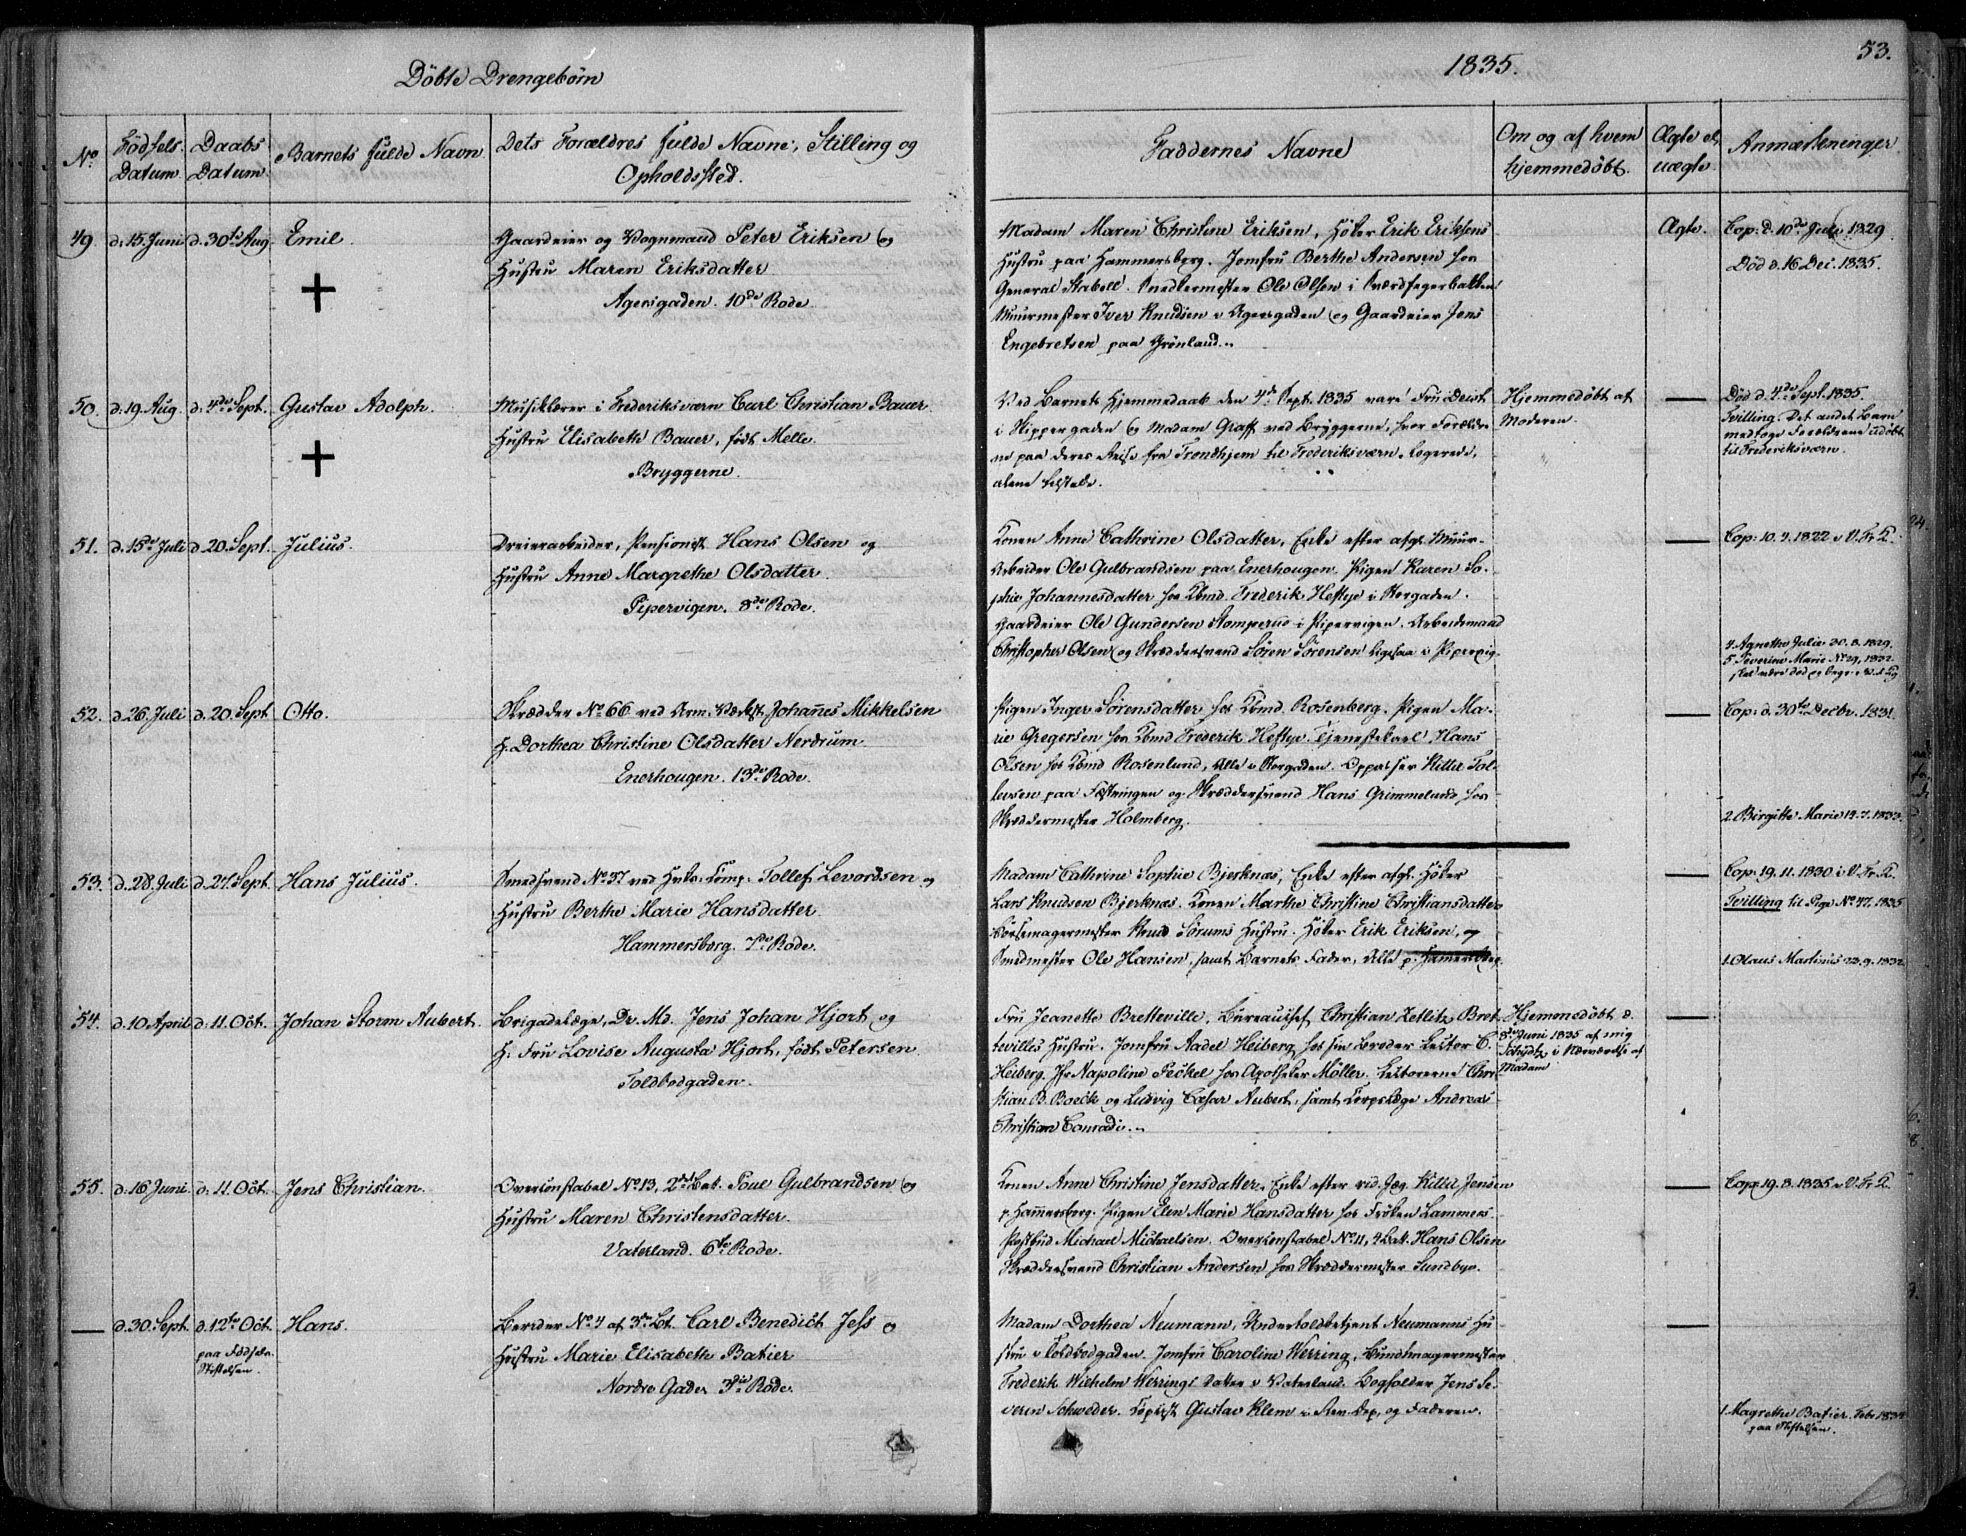 Döbte Drengebörn
1835.
53.
No
Födsels Datum
Daabs Datum
Barnets fulde Navn
Dets Forældres fulde Navne, Stilling og Opholdssted.
Faddernes Navne
Om og af hvem hjemmedöbt.
Ægte el. uægte
Anmærkninger
49 d. 15. Juni d. 30te Aug Emil.
Gaardeier og Vognmand Peter Eriksen og
Hustru Maren Eriksdatter
Agersgaden. 10de Rode
Madam Maren Christine Eriksen, Höker Erik Eriksens
Hustru paa Hammersberg. Jomfru Berthe Andersen hos
General Stabell. Snedkermester Ole Olsen i Sværdfegerbakken
Muurmester Iver Knudsen i Agersgaden og Gaardeier Jens
Engebretsen paa Grönland.
Ægte.
Cop: d. 10de Juli 1829
Död d. 16 Dec. 1835.
50. d. 19. Aug. d. 4de Sept. Gustav Adolph.
Musiklærer i Frederiksværn Carl Christian Bauer
Hustru Elisabeth Bauer, födt Melle.
Bryggerne.
Ved Barnets Hjemmedaab den 4de Sept. 1835 vare Fru Deist
i Skippergaden og Madam Graff ved Bryggerne, hvor Forældre
ne paa deres Reise fra Trondhjem til Frederiksværn logerede,
alene tilstede.
Hjemmedöbt af
Moderen.
Död d. 4de Sept. 1835.
Tvilling. Det andet Barn
medtoge Forældrene udöbt
til Frederiksværn.
51. d. 15de Juli d. 20. Sept. Julius.
Dreierarbeider, Pensionist Hans Olsen og
Hustru Anne Margrethe Olsdatter
Pipervigen. 8de Rode.
Konen Anne Cathrine Olsdatter, Enke efter afg. Muur-
Arbeider Ole Gulbrandsen paa Enerhougen. Pigen Karen So-
phie Johannesdatter hos Kbmd. Frederik Heftye i Storgaden.
Gaardeier Ole Gundersen Stomperud i Pipervigen. Arbeidsmand
Christopher Olsen og Skræddersvend Sören Sörensen ligesaa i Pipervig.
Cop: 10. 9. 1822 i V. Fr. K.
4. Agnethe Julie 30. 8. 1829.
5. Severine Marie No 29, 1832.
52. d. 26. Juli d. 20. Sept Otto.
Skrædder No 66 ved Arm. Værkst. Johannes Mikkelsen
H. Dorthea Christine Olsdatter Nerdrum
Enerhougen. 13de Rode.
Pigen Inger Sörensdatter hos Kbmd. Rosenberg. Pigen Ma-
rie Gregersen hos Kbmd Frederik Heftye. Tjenestekarl Hans
Olsen hos Kbmd Rosenlund, alle i Storgaden. Oppasser Kittil Tol-
levsen paa Fæstningen og Skræddersvend Hans Grimmelund hos
Skræddermester Holmberg.
Cop: d. 30te Decbr. 1831.
2. Birgitte Marie 14. 7. 1833.
53. d. 28. Juli d. 27. Sept. Hans Julius.
Smedsvend No 37 ved Hvks. Comp. Tollef Levordsen og
Hustru Berthe Marie Hansdatter
Hammersborg. 7de Rode.
Madam Cathrine Sophie Bjerknæs, Enke efter afg. Höker
Lars Knudsen Bjerknæs. Konen Marthe Christine Christiansdatter
Börsemagermester Knud Sörums Hustru. Höker Erik Eriksen, og
Smedmester Ole Hansen, samt Barnets Fader, Alle p. Hamersberg
Cop: 19. 11. 1830 i V. Fr. K.
Tvilling til Pige No 47. 1835
1. Olaus Martinus 23. 9. 1832
54. d. 10 April d. 11. Oct. Johan Storm Aubert.
Brigadelæge, Dr. Md. Jens Johan Hjort og
H. Fru Lovise Augusta Hjort, födt Petersen
Toldbodgaden.
Fru Jeanette Bretteville, Bureauchef Christian Zetlitz Bret-
tevilles Hustru. Jomfru Aadel Heiberg hos sin Broder Lector C.
Heiberg. Jfr Napoline Peckel hos Apotheker Møller. Lectorerne Chri-
stian B. Boeck og Ludvig Cæsar Aubert, samt Corpslæge Andreas
Christian Conradi.
Hjemmedöbt d.
8de Juni 1835 af mig
i Nærværelse af
Madam
55. d. 16 Juni d. 11. Oct. Jens Christian.
Overconstabel No 13, 2det Bat. Poul Gulbrandsen og
Hustru Maren Christensdatter.
Vaterland. 6te Rode.
Konen Anne Christine Jensdatter, Enke efter rid. Jæg. Kittil Jensen
p. Hamersberg. Pigen Elen Marie Hansdatter hos Fröken Lammers
Postbud Michael Michaelsen. Overconstabel No 11, 2 Bat. Hans Olsen
Skræddersvend Christian Andersen hos Skræddermester Sundbye.
Cop: 19. 8. 1835 i V. Fr. K.
d. 30. Sept. d. 12te Oct. Hans.
paa Födsels-
Stiftelsen.
Berider No 4 af 3die Bt. Carl Benedict Jess og
Hustru Marie Elisabeth Batier
Nordre Gade. 3die Rode.
Madam Dorthea Neumann, Undertoldbetjent Neumanns Hu
stru i Toldbodgaden. Jomfru Caroline Werring, Bundtmagermester
Frederik Wilhelm Werrings Datter i Vaterland. Bogholder Jens Se-
verin Schweder. Copist Gustav Klem i Rev. Dep. og Faderen.
1. Magrethe Batier. Febr 1834
paa Stiftelsen.